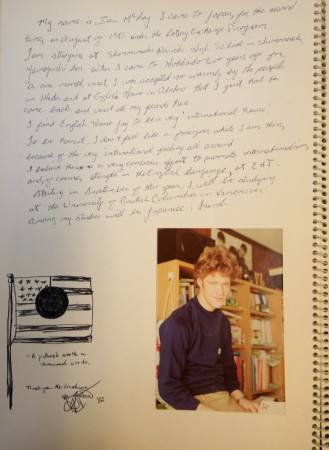 My name is Ian McKay. I came to Japan, for the second
time, in August of 1981 under the Rotary Exchange Program.
I am studying at Shimonoseki High School in Shimonoseki,
Yamaguchi Ken. When I came to Hokkaido two years ago for
a one month visit, I was accepted so warmly by the people
in and at English House in that I just had to
come back and visit all my friends here.
I find English House Joy to be a very international house
To be honest, I don't feel like a foreigner while I am there,
because of the very international feeling all around.
I believe there is a very conscious effort to promote internationalism,
and, of course, strength in the English language, at E.H.J.
Starting in September of this year, I will be studying
at the University of British Columbia in Vancouver.
Among my studies will be Japanese & French.
- A picture's worth a
thousand words.
Thank you
'82